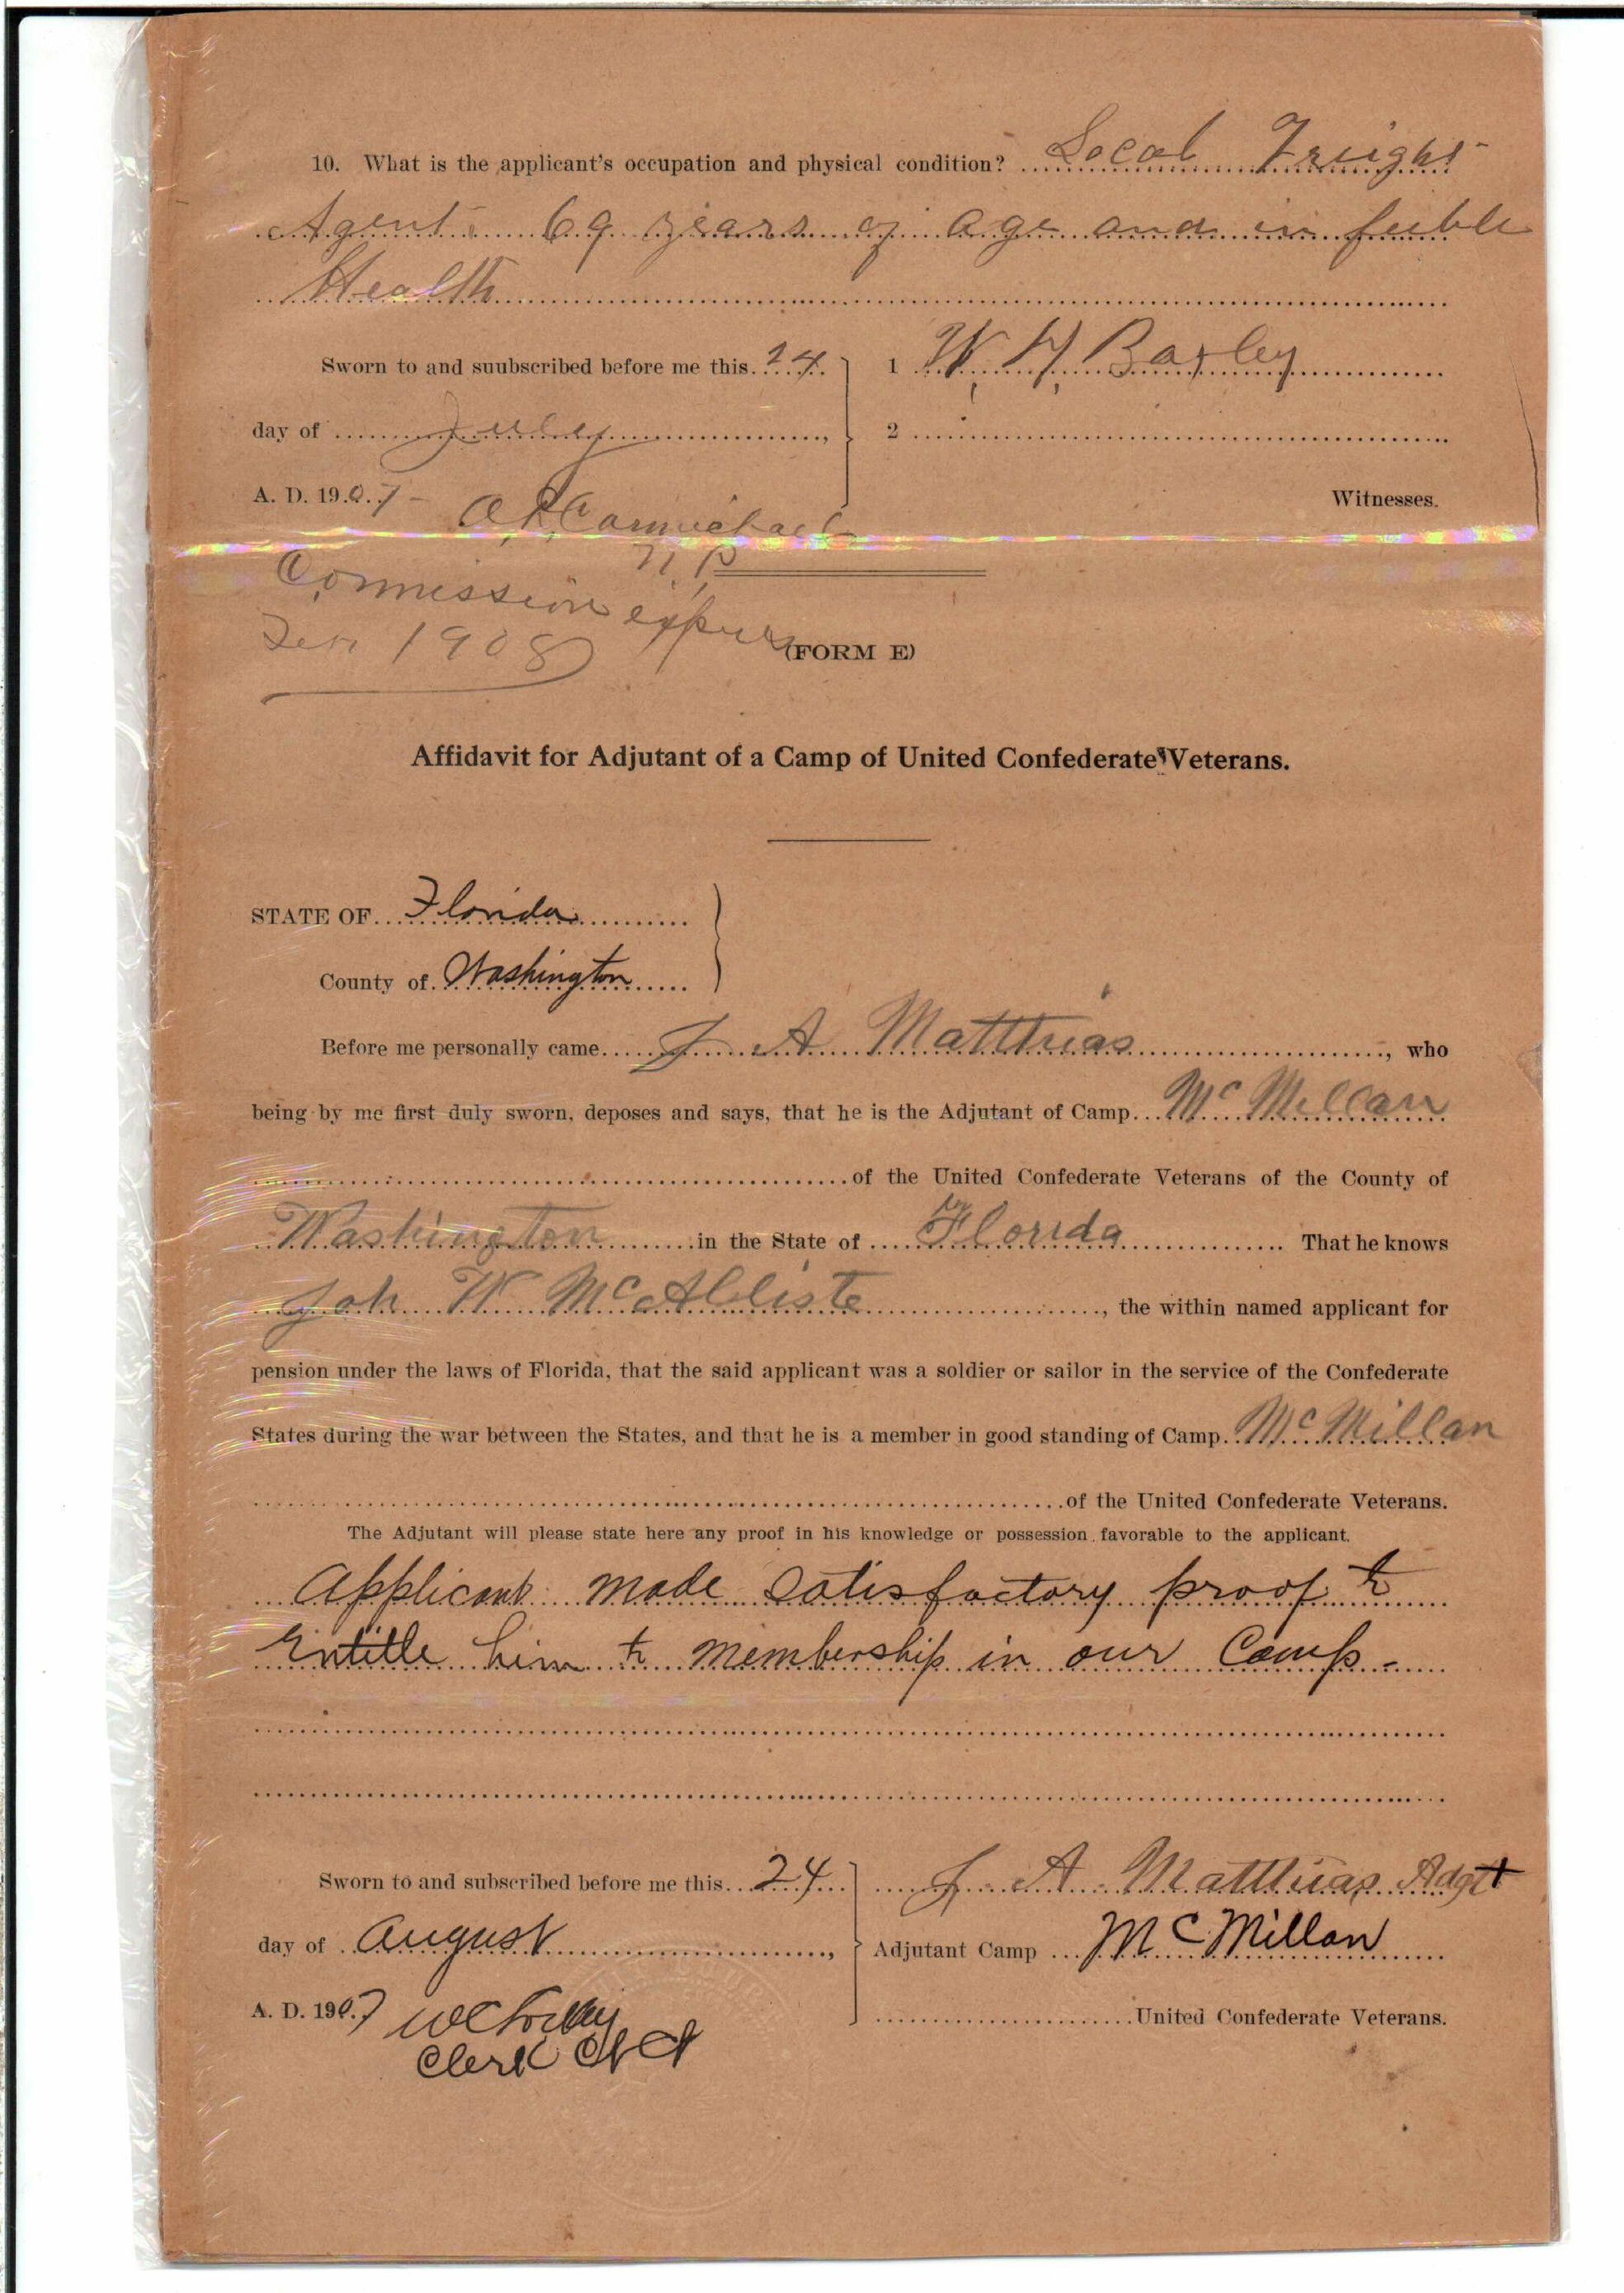 10. What is the applicant's occupation and physical condition? Local Freight
Agent. 69 years of age and in feeble
Health
Sworn to and suubscribed before me this 24
1 W. H. Baxley
day of July,
2
A. D. 1907 -
Witnesses.
Carmichael
N. P.
Commission expires
1908
(FORM E)
Affidavit for Adjutant of a Camp of United Confederate Veterans.
STATE OF Florida
County of Washington
Before me personally came J A Matthias, who
being by me first duly sworn, deposes and says, that he is the Adjutant of Camp McMillan
of the United Confederate Veterans of the County of
Washington in the State of Florida That he knows
Joh W McAlliste, the within named applicant for
pension under the laws of Florida, that the said applicant was a soldier or sailor in the service of the Confederate
States during the war between the States, and that he is a member in good standing of Camp McMillan
of the United Confederate Veterans.
The Adjutant will please state here any proof in his knowledge or possession favorable to the applicant.
Applicant made satisfactory proof to
Entitle him to membership in our Camp -
Sworn to and subscribed before me this 24
J. A. Matthias Adgt
day of August,
Adjutant Camp McMillan
A. D. 1907
United Confederate Veterans.
Clerk